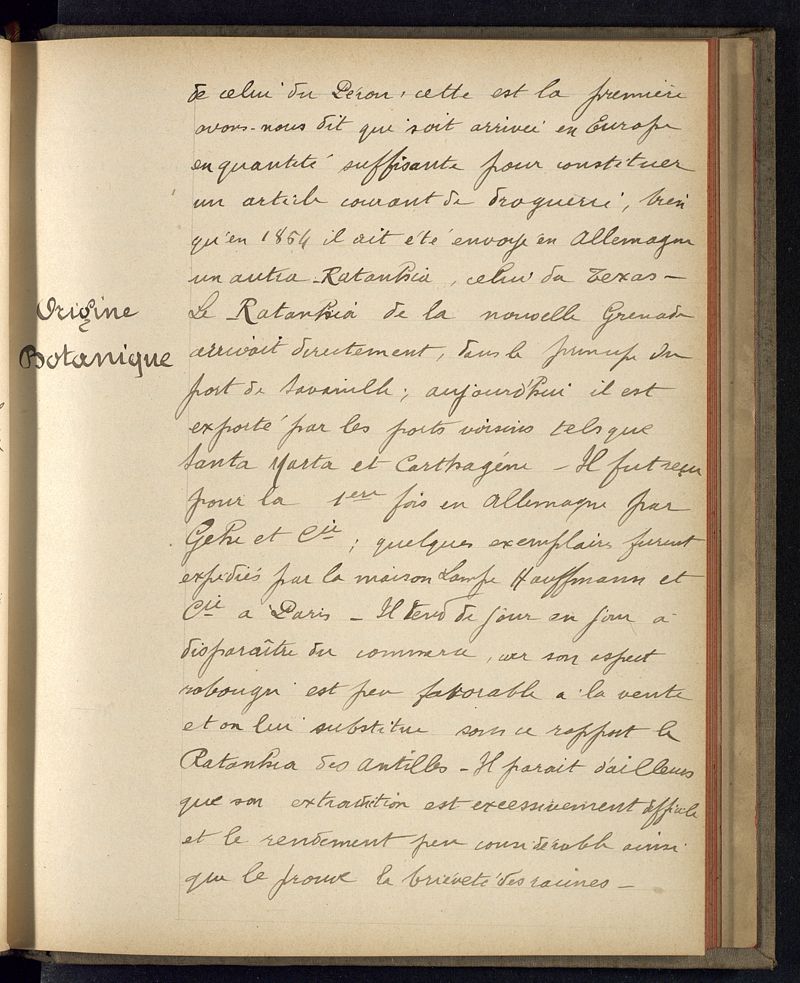 de celui du Pérou ; cette est la première
avons-nous dit qui soit arrivée en Europe
en quantité suffisante pour constituer
un article courant de droguerie, bien
qu'en 1854 il ait été envoyé en Allemagne
un autre Ratanhia, celui du Texas —
Origine
Botanique
Le Ratanhia de la nouvelle Grenade
arrivait directement, dans le principe du
port de Savanille ; aujourd'hui il est
exporté par les ports voisins tels que
Santa Marta et Carthagène — Il fut reçu
pour la 1ère fois en Allemagne par
Gehe et Cie ; quelques exemplaires furent
expédiés par la maison Lampe Kauffmann et
Cie a Paris — Il tend de jour en jour à
disparaître du commerce, car son aspect
rabougri est peu favorable a la vente
et on lui substitue sous ce rapport le
Ratanhia des Antilles — Il parait d'ailleurs
que son extraction est excessivement difficile
et le rendement peu considérable ainsi
que le prouve la brièveté des racines —